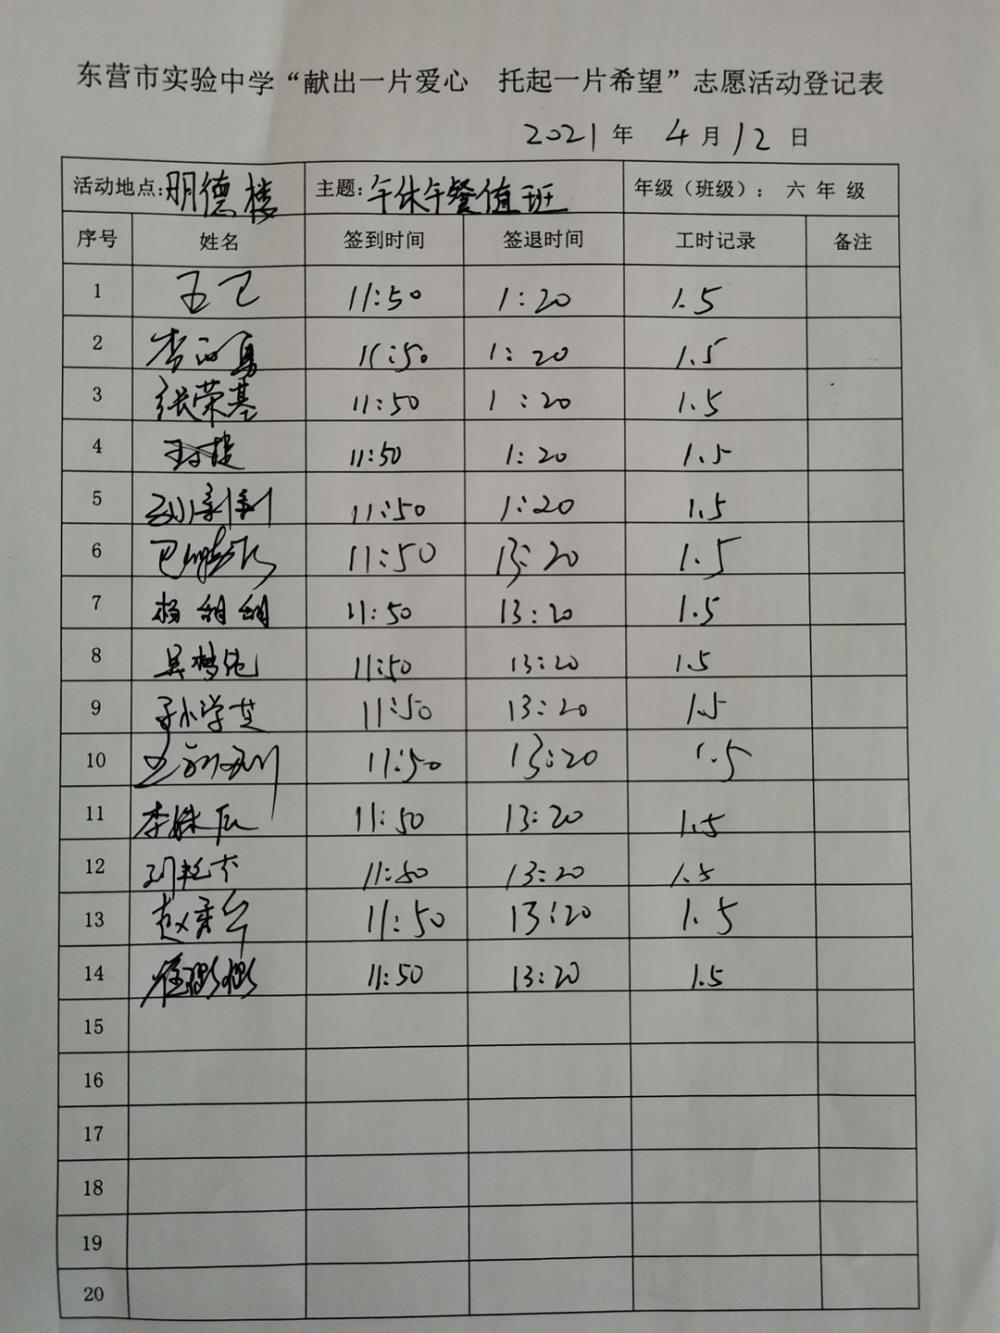 东营市实验中学“献出一片爱心 托起一片希望”志愿活动登记表
2021年 4月12日
活动地点:明德楼 主题:午休午餐值班 年级（班级）：六年级
序号 姓名 签到时间 签退时间 工时记录 备注
1 11:50 1:20 1.5
2 11:50 1:20 1.5
3 张荣基 11:50 1:20 1.5
4 11:50 1:20 1.5
5 11:50 1:20 1.5
6 11:50 13:20 1.5
7 杨甜甜 11:50 13:20 1.5
8 吴梦纯 11:50 13:20 1.5
9 孙学芝 11:50 13:20 1.5
10 11:50 13:20 1.5
11 11:50 13:20 1.5
12 11:50 13:20 1.5
13 11:50 13:20 1.5
14 11:50 13:20 1.5
15
16
17
18
19
20